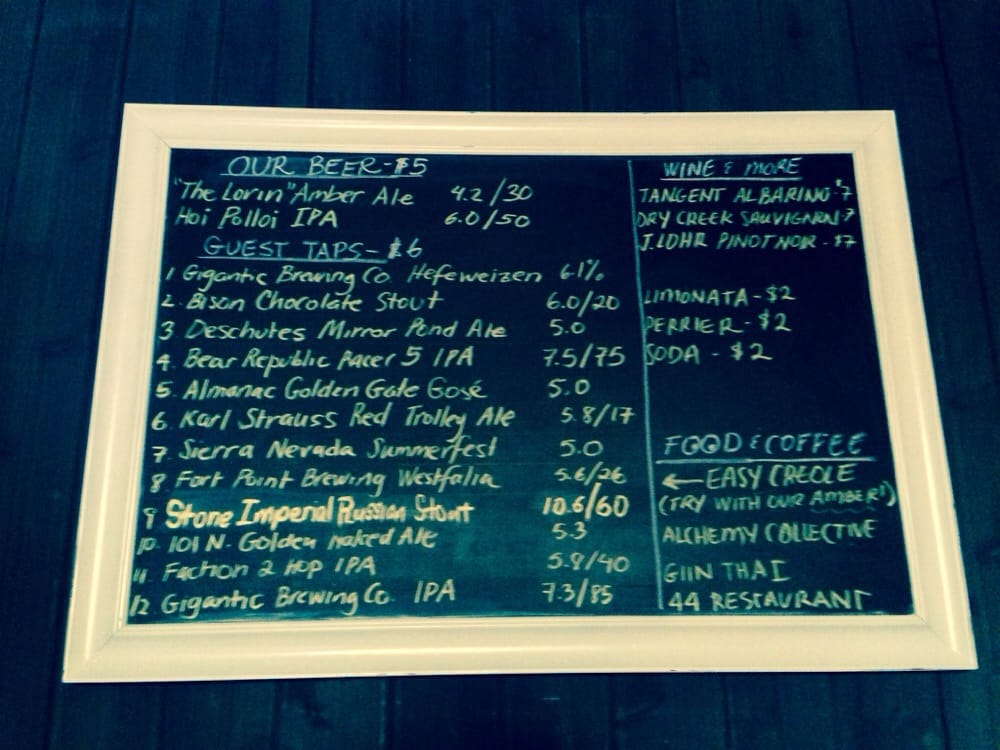 OUR BEER - $5
"The Lorin" Amber Ale 4.2/30
Hoi Polloi IPA 6.0/50
GUEST TAPS - $6
1. Gigantic Brewing Co. Hefeweizen 6.1%
2. Bison Chocolate Stout 6.0/20
3 Deschutes Mirror Pond Ale 5.0
4. Bear Republic Racer 5 IPA 7.5/75
5. Almanac Golden Gate Gosé 5.0
6. Karl Strauss Red Trolley Ale 5.8/17
7. Sierra Nevada Summerfest 5.0
8 Fort Point Brewing Westfalia 5.6/26
9 Stone Imperial Russian Stout 10.6/60
10. 101 N. Golden Naked Ale 5.3
11. Faction 2 Hop IPA 5.8/40
12 Gigantic Brewing Co. IPA 7.3/85
WINE & MORE
TANGENT ALBARINO $7
DRY CREEK SAUVIGNON - 7
J. LOHR PINOT NOIR - $7
LIMONATA - $2
PERRIER - $2
SODA - $2
FOOD & COFFEE
← EASY CREOLE
(TRY WITH OUR AMBER!)
ALCHEMY COLLECTIVE
GIIN THAI
44 RESTAURANT